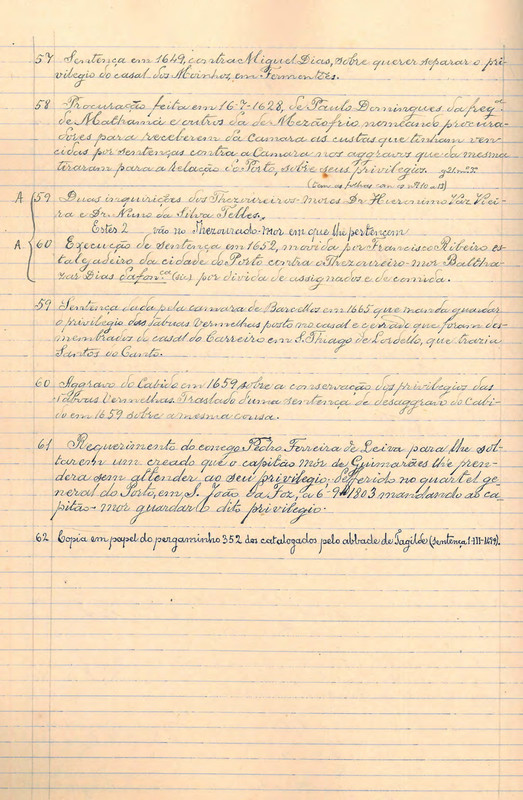 57 Sentença em 1649, contra Miguel Dias, sobre querer separar o pri-
vilegio do casal dos Moinhos, em Fermentões.
58 Procuração feita em 16-7-1628, de Paulo Domingues da freg.ª
de Mathamá e outros da de Mezãofrio nomeando procura-
dores para receberem da Camara as custas que tinham ven-
cidas por sentenças contra a Camara nos aggravos que da mesma
tiraram para a Relação do Porto, sobre seus privilegios.
(Tem as folhas com os nos 10 a 13)
A 59 Duas inquirições dos Thezoureiros-Móres Dr. Hieronimo Vaz Viei-
ra e Dr. Nuno da Silva Telles.
Estes 2 vão no Thezourado-mor em que lhe pertençem
A 60 Execução de sentença em 1652, movida por Francisco Ribeiro es-
talajadeiro da cidade do Porto contra o Thezoureiro-mor Baltha-
zar Dias (sic) por divida de assignados e de comida.
59 Sentença dada pela camara de Barcellos em 1665 que manda guardar
o privilegio das Tabuas Vermelhas posto no casal e cerrado que foram des-
membrados do casal do Carreiro em S. Thiago de Lordello, que trazia
Santos do Canto.
60 Aggravo do Cabido em 1659 sobre a conservação dos privilegios das
Tabuas Vermelhas. Traslado d'uma sentença de desaggravo do Cabi-
do em 1659 sobre a mesma cousa.
61 Requerimento do conego Pedro Ferreira de Leiva para lhe sol-
tarem um creado que o capitão mór de Guimarães lhe pren-
dera sem attender ao seu privilegio; deferido no quartel ge-
neral do Porto, em S. João da Foz, a 6-9-1803 mandando ao ca-
pitão-mor guardar o dito privilegio.
62 Copia em papel do pergaminho 352 dos catalogados pelo abbade de Tagilde (sentença 1-III-1479).